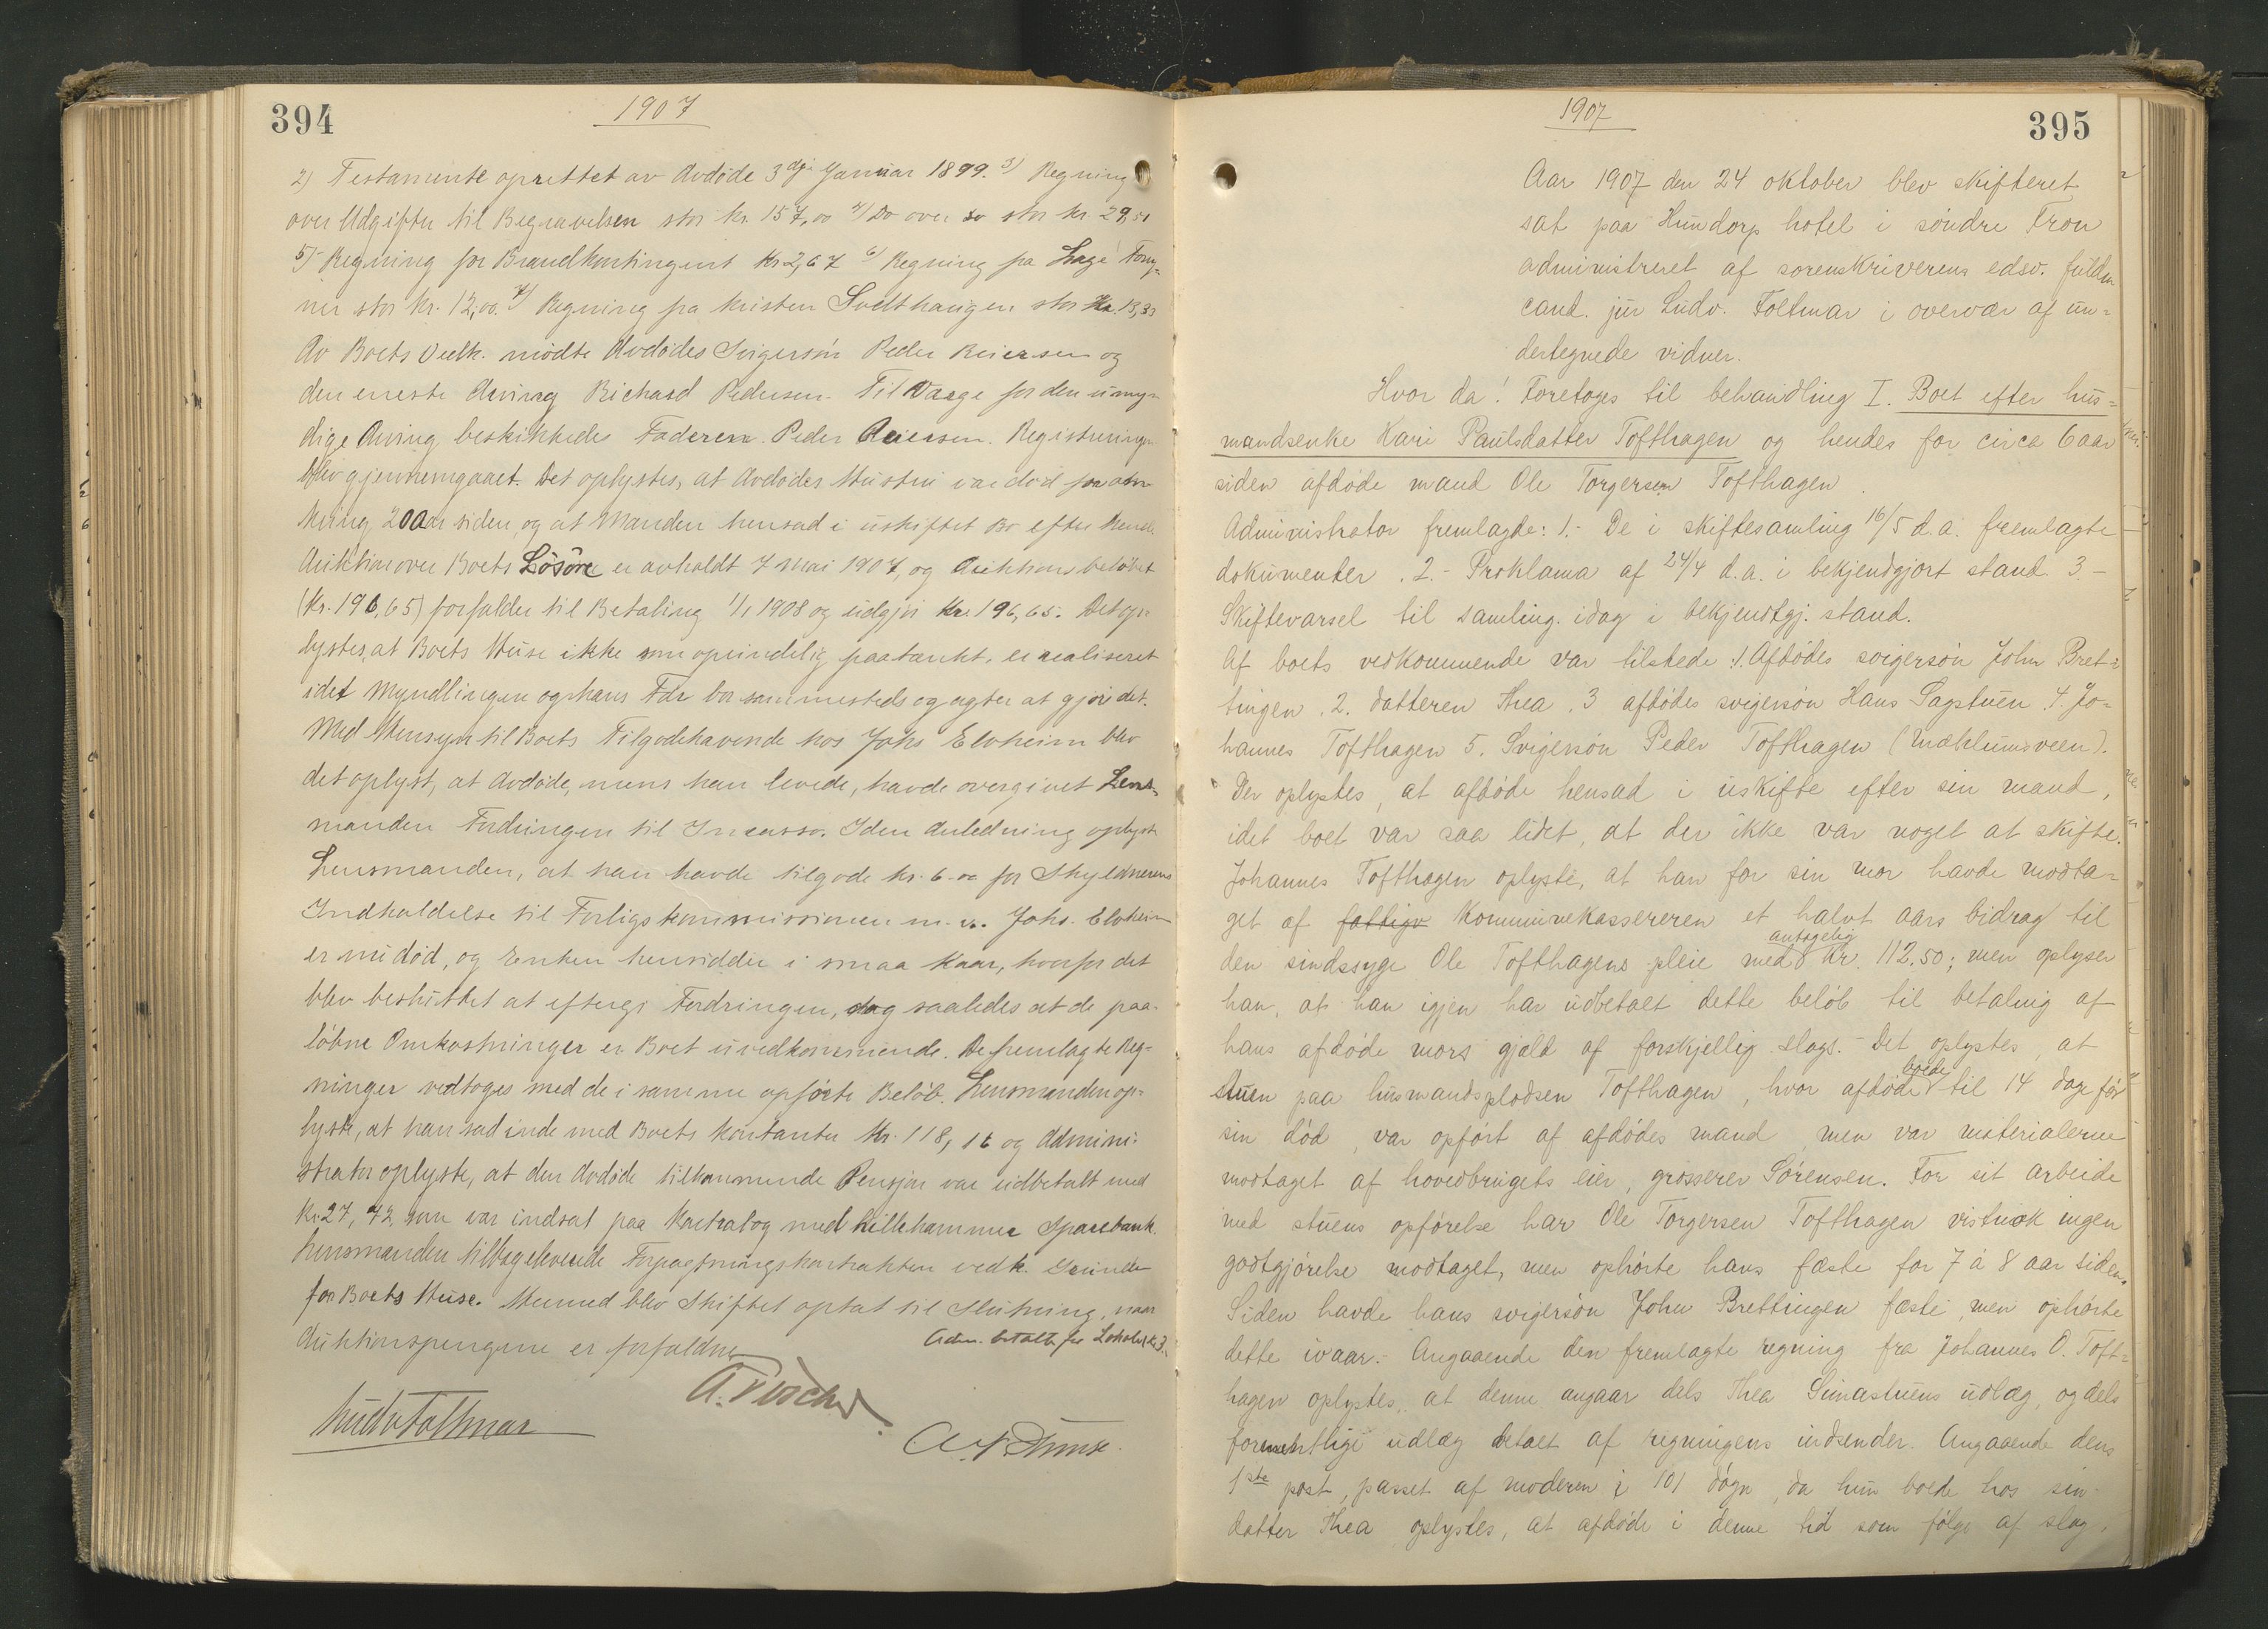 394
1907
2) Testamente oprettet av Avdöde 3dje Januar 1899. 3) Regning
over Udgifter til Begravelsen stor kr. 157,00 4) Do over do stor kr. 29,51
5) Regning for Brandkontingent Kr 2,67 6) Regning fra Lage
stor Kr. 12,00. 7) Regning fra Kristen Svelthaugen stor Kr. 13,33
Av Boets Vedk. mödte Avdödes Svigersön Peder Reiersen og
den eneste Arving Richard Pedersen. Til Værge for den umyn-
dige Arving beskikkedes Faderen Peder Reiersen. Registreringen
blev gjennemgaaet. Det oplystes, at Avdödes Hustru var död for om-
kring 20 Aar siden, og at Manden hensad i uskiftet Bo efter hende.
Auktion over Boets Lösöre er avholdt 7 Mai 1907, og Auktionsbelöbet
(Kr. 196,65) forfalder til Betaling 1/1 1908 og udgjör Kr. 196,65. Det op-
lystes, at Boets Huse ikke som oprindelig paatænkt, er realiseret
idet Myndlingen og hans Far bor sammesteds og agter at gjöre det.
Med Hensyn til Boets Tilgodehavende hos Johs Elvheim blev
det oplyst, at Avdöde, mens han levede, havde overgivet Lens-
manden Fordringen til Incasso. I den Anledning oplyste
Lensmanden, at han havde tilgode kr. 6.00 for Skyldnerens
Indkaldelse til Forligskommissionen m. v. Johs. Elvheim
er nu död, og Enken hensidder i smaa Kaar, hvorfor det
blev besluttet at eftergi Fordringen, dog saaledes at de paa-
löbne Omkostninger er Boet uvedkommende. De fremlagte Reg-
ninger vedtoges med de i samme opförte Belöb. Lensmanden op-
lyste, at han sad inde med Boets Kontanter Kr. 118,16 og Admini-
strator oplyste, at den Avdöde tilkommende Pensjon var udbetalt med
Kr. 27,72 som var indsat paa Kontrabog med Lillehammer Sparebank.
Lensmanden tilbageleverede Forpagtningskontrakten vedk. Grunden
for Boets Huse. Hermed blev Skiftet optat til Slutning, naar
Auktionspengene er forfaldne. Adm. betalte for Lokale Kr 3.
Ludv Foltmar
1907
395
Aar 1907 den 24 oktober blev skifteret
sat paa Hundorp hotel i söndre Fron
administreret af sorenskriverens edsv. fuldm
cand. jur Ludv. Foltmar i overvær af un-
dertegnede vidner.
Hvor da! Foretoges til behandling I. Boet efter hus-
mandsenke Kari Paulsdatter Tofthagen og hendes for circa 6 aar
siden afdöde mand Ole Torgersen Tofthagen.
Administrator fremlagte: 1.- De i skiftesamling 16/5 d.a. fremlagte
dokumenter. 2.- Proklama af 24/4 d.a. i bekjendgjort stand 3.-
Skiftevarsel til samling idag i bekjendtgj. stand.
Af boets vedkommende var tilstede: 1. Afdödes svigersön John Bret-
tingen. 2. datteren Thea. 3 afdödes svigersön Hans Sagstuen. 4. Jo-
hannes Tofthagen 5. Svigersön Peder Tofthagen (Mæhlumsveen).
Der oplystes, at afdöde hensad i uskifte efter sin mand,
idet boet var saa lidet, at der ikke var noget at skifte.
Johannes Tofthagen oplyste, at han for sin mor havde modta-
get af fattigv kommunekassereren et halvt aars bidrag til
den sindssyge Ole Tofthagens pleie med antagelig kr. 112.50; men oplyser
han, at han igjen har udbetalt dette belöb til betaling af
hans afdöde mors gjæld af forskjellig slags. - Det oplystes, at
stuen paa husmandspladsen Tofthagen, hvor afdöde boede til 14 dage för
sin död, var opfört af afdödes mand men var materialerne
modtaget af hovedbrugets eier, grosserer Sörensen. For sit arbeide
med stuens opförelse har Ole Torgersen Tofthagen vistnok ingen
godtgjörelse modtaget, men ophörte hans fæste for 7 à 8 aar siden.
Siden havde hans svigersön John Brettingen fæste, men ophörte
dette ivaar. - Angaaende den fremlagte regning fra Johannes O. Toft-
hagen oplystes, at denne angaar dels Thea Simastuens udlæg, og dels
forenentlige udlæg betalt af regningens indsender. Angaaende dens
1ste post, passet af moderen i 101 dögn, da hun boede hos sin
datter Thea oplystes, at afdöde i denne tid som fölge af slag,